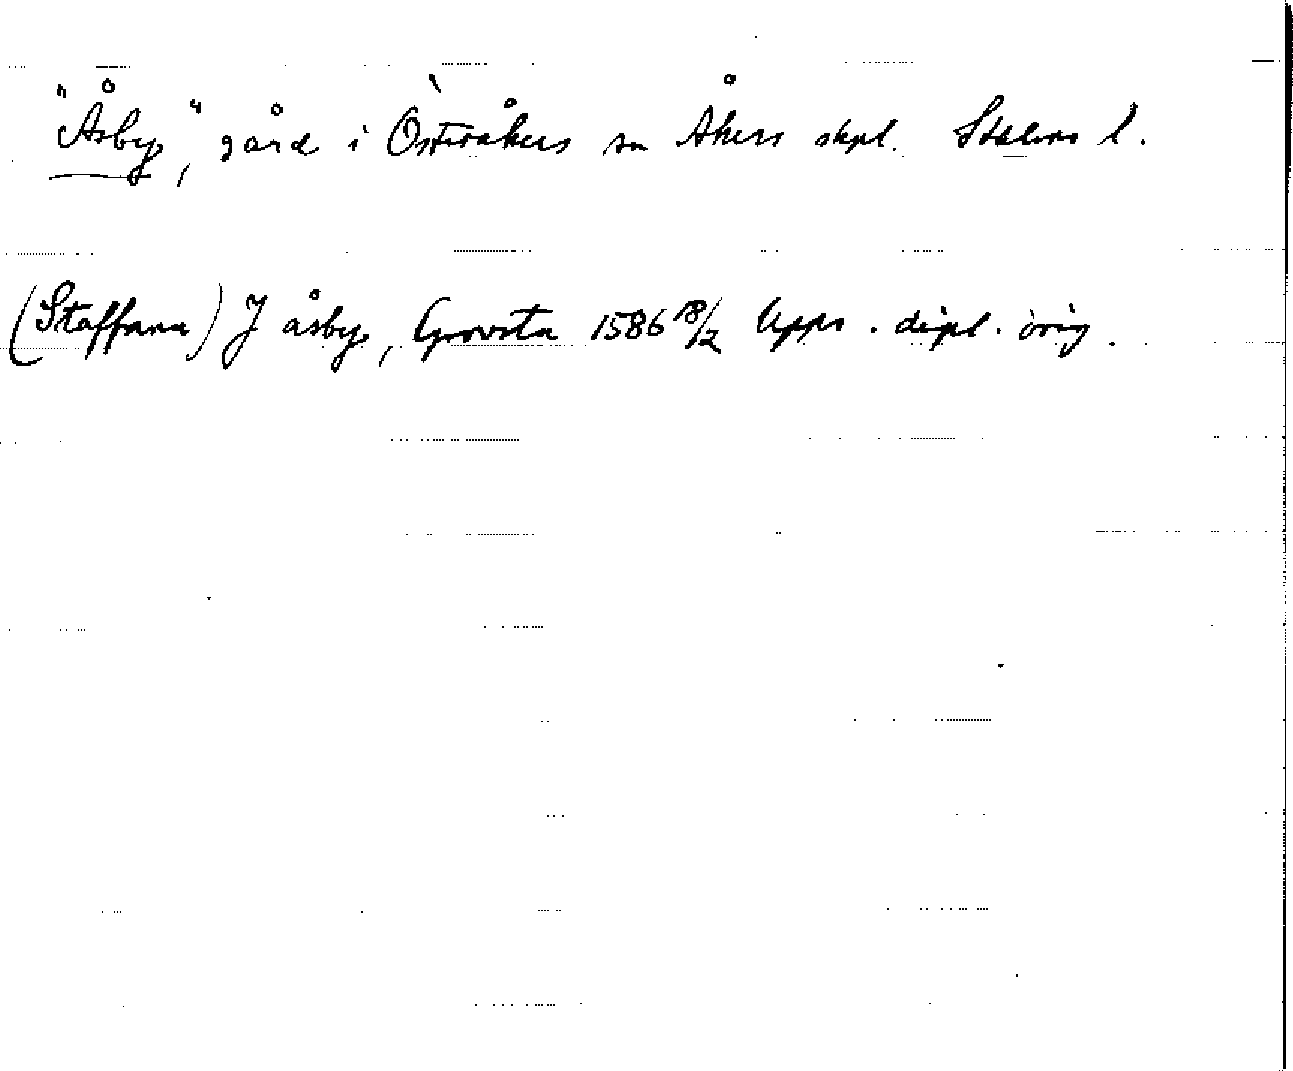 "Åsby", gård i Österåkers sn Åkers skpl. Sthlms l.
(Staffann) J åsby, Growsta 1586 18/2 Upps. dipl. orig.